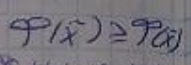 φ(x̄) ≥ φ(x)